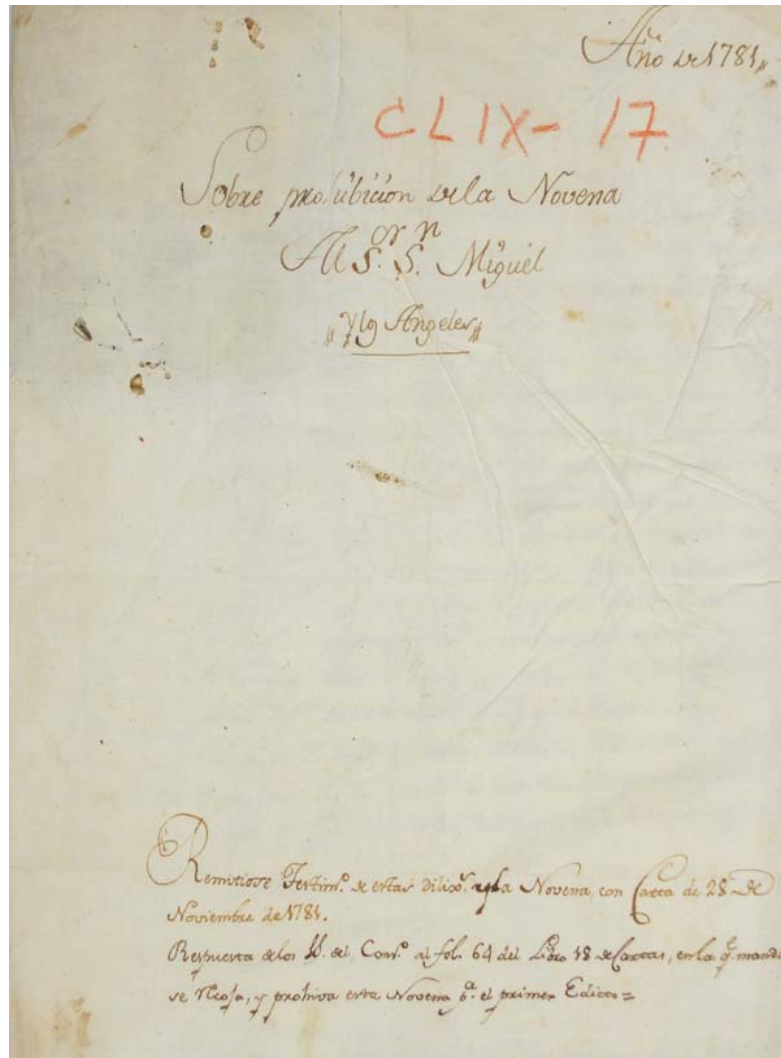 Año de 1781,,
CLIX- 17
Sobre prohibicion dela Novena
Al S.or S.n Miguel
,,y los Angeles,,
Remitiose Testim.o de estas Dilix.s y la Novena, con Carta de 28 de
Noviembre de 1781.
Respuesta delos SS. del Con.o al fol. 64 del Libro 18 de Cartas, en la q.e manda
se recoja, y prohiva esta Novena p.r el primer Edicto=